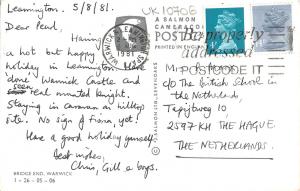 Leamington. 5/8/81.
Dear Paul,
Having
a hot but happy
holiday in Leamington. Have
done Warwick Castle and
seen real armoured knight.
Staying in caravan on hilltop
site. No sign of Fiona yet!
Have a good holiday yourself.
Best wishes,
Chris, Gill & boys.
BRIDGE END, WARWICK
1 - 26 - 05 - 06
UK 10706
A SALMON
CAMERACOLOUR
POST
PRINTED IN ENGLAND
WARWICK & LEAMINGTON SPA
1981
Be properly
addressed
POSTCODE IT
c/o The British School in
the Netherlands,
Tapijtweg 10,
2597 KH THE HAGUE
THE NETHERLANDS.